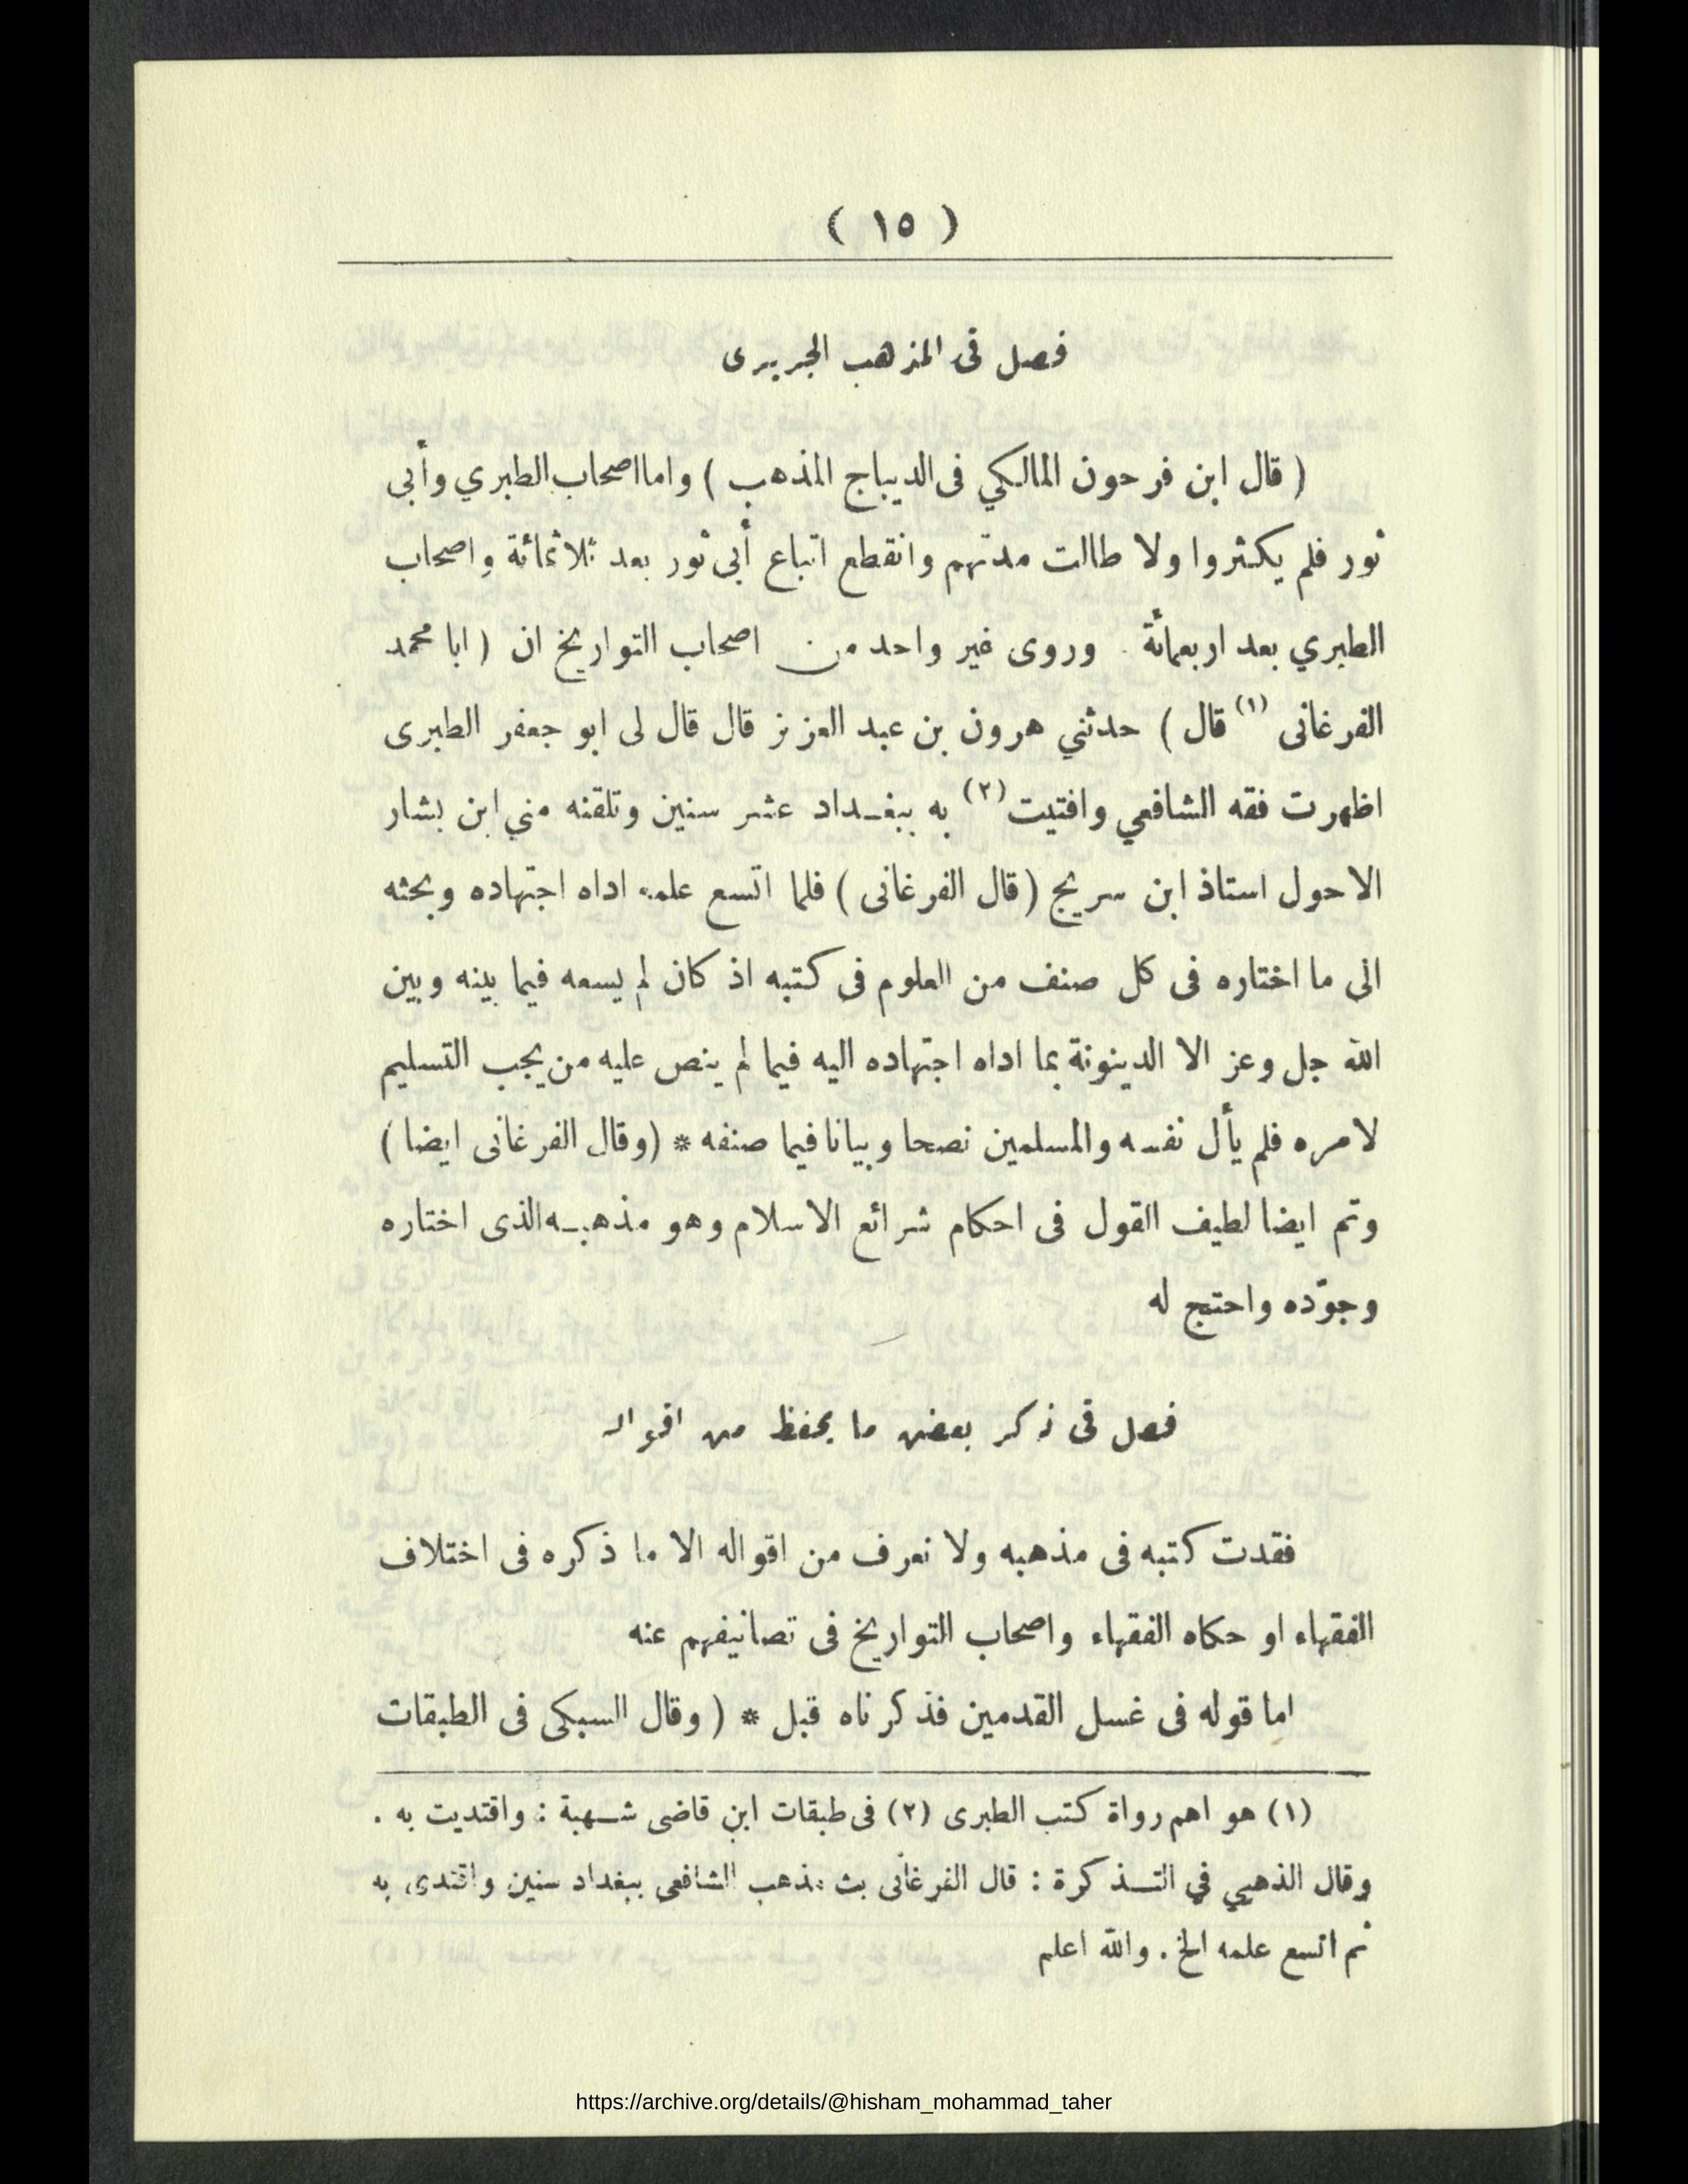 ( ١٥ )
فصل فى المذهب الجريرى
( قال ابن فرحون المالكي فى الديباج المذهب ) واما اصحاب الطبري وأبى
ثور فلم يكثروا ولا طالت مدتهم وانقطع اتباع أبى ثور بعد ثلاثمائة واصحاب
الطبري بعد اربعمائة . وروى غير واحد من اصحاب التواريخ ان ( ابا محمد
الفرغانى (١) قال ) حدثني هرون بن عبد العزيز قال قال لى ابو جعفر الطبرى
اظهرت فقه الشافعي وافتيت (٢) به ببغداد عشر سنين وتلقنه مني ابن بشار
الاحول استاذ ابن سريج ( قال الفرغانى ) فلما اتسع علمه اداه اجتهاده وبحثه
الى ما اختاره فى كل صنف من العلوم فى كتبه اذ كان لم يسعه فيما بينه وبين
الله جل وعز الا الدينونة بما اداه اجتهاده اليه فيما لم ينص عليه من يجب التسليم
لامره فلم يأل نفسه والمسلمين نصحا وبيانا فيما صنفه * (وقال الفرغانى ايضا )
وتم ايضا لطيف القول فى احكام شرائع الاسلام وهو مذهبه الذى اختاره
وجوّده واحتج له
فصل فى ذكر بعض ما يحفظ من اقواله
فقدت كتبه فى مذهبه ولا نعرف من اقواله الا ما ذكره فى اختلاف
الفقهاء او حكاه الفقهاء واصحاب التواريخ فى تصانيفهم عنه
اما قوله فى غسل القدمين فذكرناه قبل * ( وقال السبكى فى الطبقات
(١) هو اهم رواة كتب الطبرى (٢) فى طبقات ابن قاضى شهبة : واقتديت به .
وقال الذهبي في التذكرة : قال الفرغانى بث مذهب الشافعى ببغداد سنين واقتدى به
ثم اتسع علمه الخ . والله اعلم
https://archive.org/details/@hisham_mohammad_taher